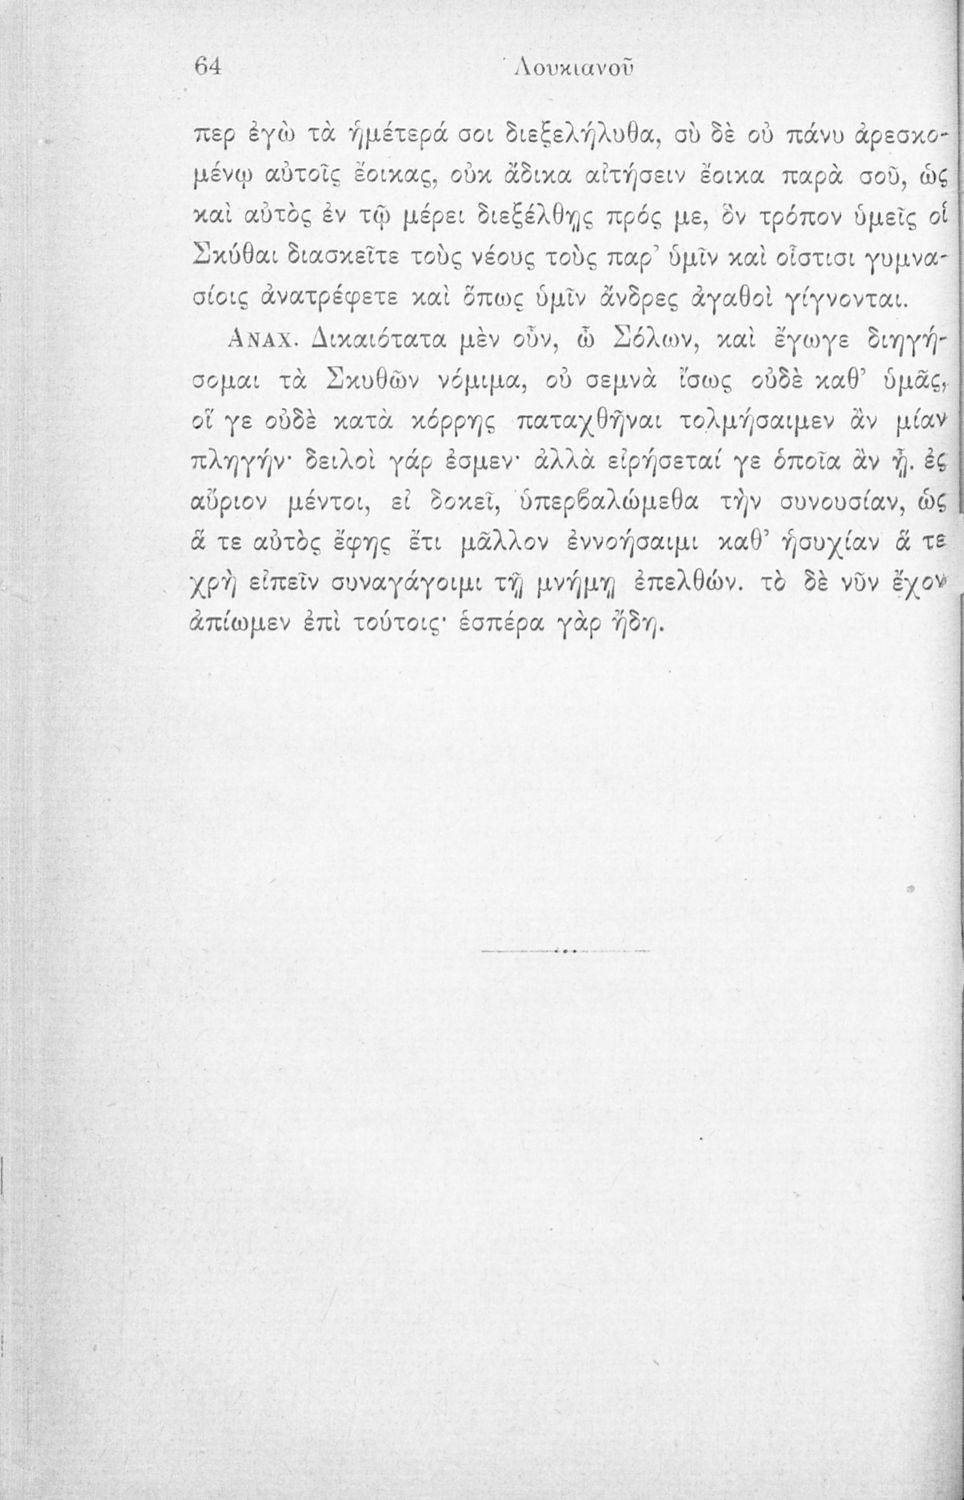 64 Λουκιανοῦ
περ ἐγὼ τὰ ἡμέτερά σοι διεξελήλυθα, σὺ δὲ οὐ πάνυ ἀρεσκο-
μένῳ αὐτοῖς ἔοικας, οὐκ ἄδικα αἰτήσειν ἔοικα παρὰ σοῦ, ὡς
καὶ αὐτὸς ἐν τῷ μέρει διεξέλθῃς πρός με, ὃν τρόπον ὑμεῖς οἱ
Σκύθαι διασκεῖτε τοὺς νέους τοὺς παρ’ ὑμῖν καὶ οἷστισι γυμνα-
σίοις ἀνατρέφετε καὶ ὅπως ὑμῖν ἄνδρες ἀγαθοὶ γίγνονται.
ΑΝΑΧ. Δικαιότατα μὲν οὖν, ὦ Σόλων, καὶ ἔγωγε διηγή-
σομαι τὰ Σκυθῶν νόμιμα, οὐ σεμνὰ ἴσως οὐδὲ καθ’ ὑμᾶς,
οἵ γε οὐδὲ κατὰ κόρρης παταχθῆναι τολμήσαιμεν ἂν μίαν
πληγήν· δειλοὶ γάρ ἐσμεν· ἀλλὰ εἰρήσεταί γε ὁποῖα ἂν ᾖ. ἐς
αὔριον μέντοι, εἰ δοκεῖ, ὑπερβαλώμεθα τὴν συνουσίαν, ὡς
ἅ τε αὐτὸς ἔφης ἔτι μᾶλλον ἐννοήσαιμι καθ’ ἡσυχίαν ἅ τε
χρὴ εἰπεῖν συναγάγοιμι τῇ μνήμῃ ἐπελθών. τὸ δὲ νῦν ἔχον
ἀπίωμεν ἐπὶ τούτοις· ἑσπέρα γὰρ ἤδη.